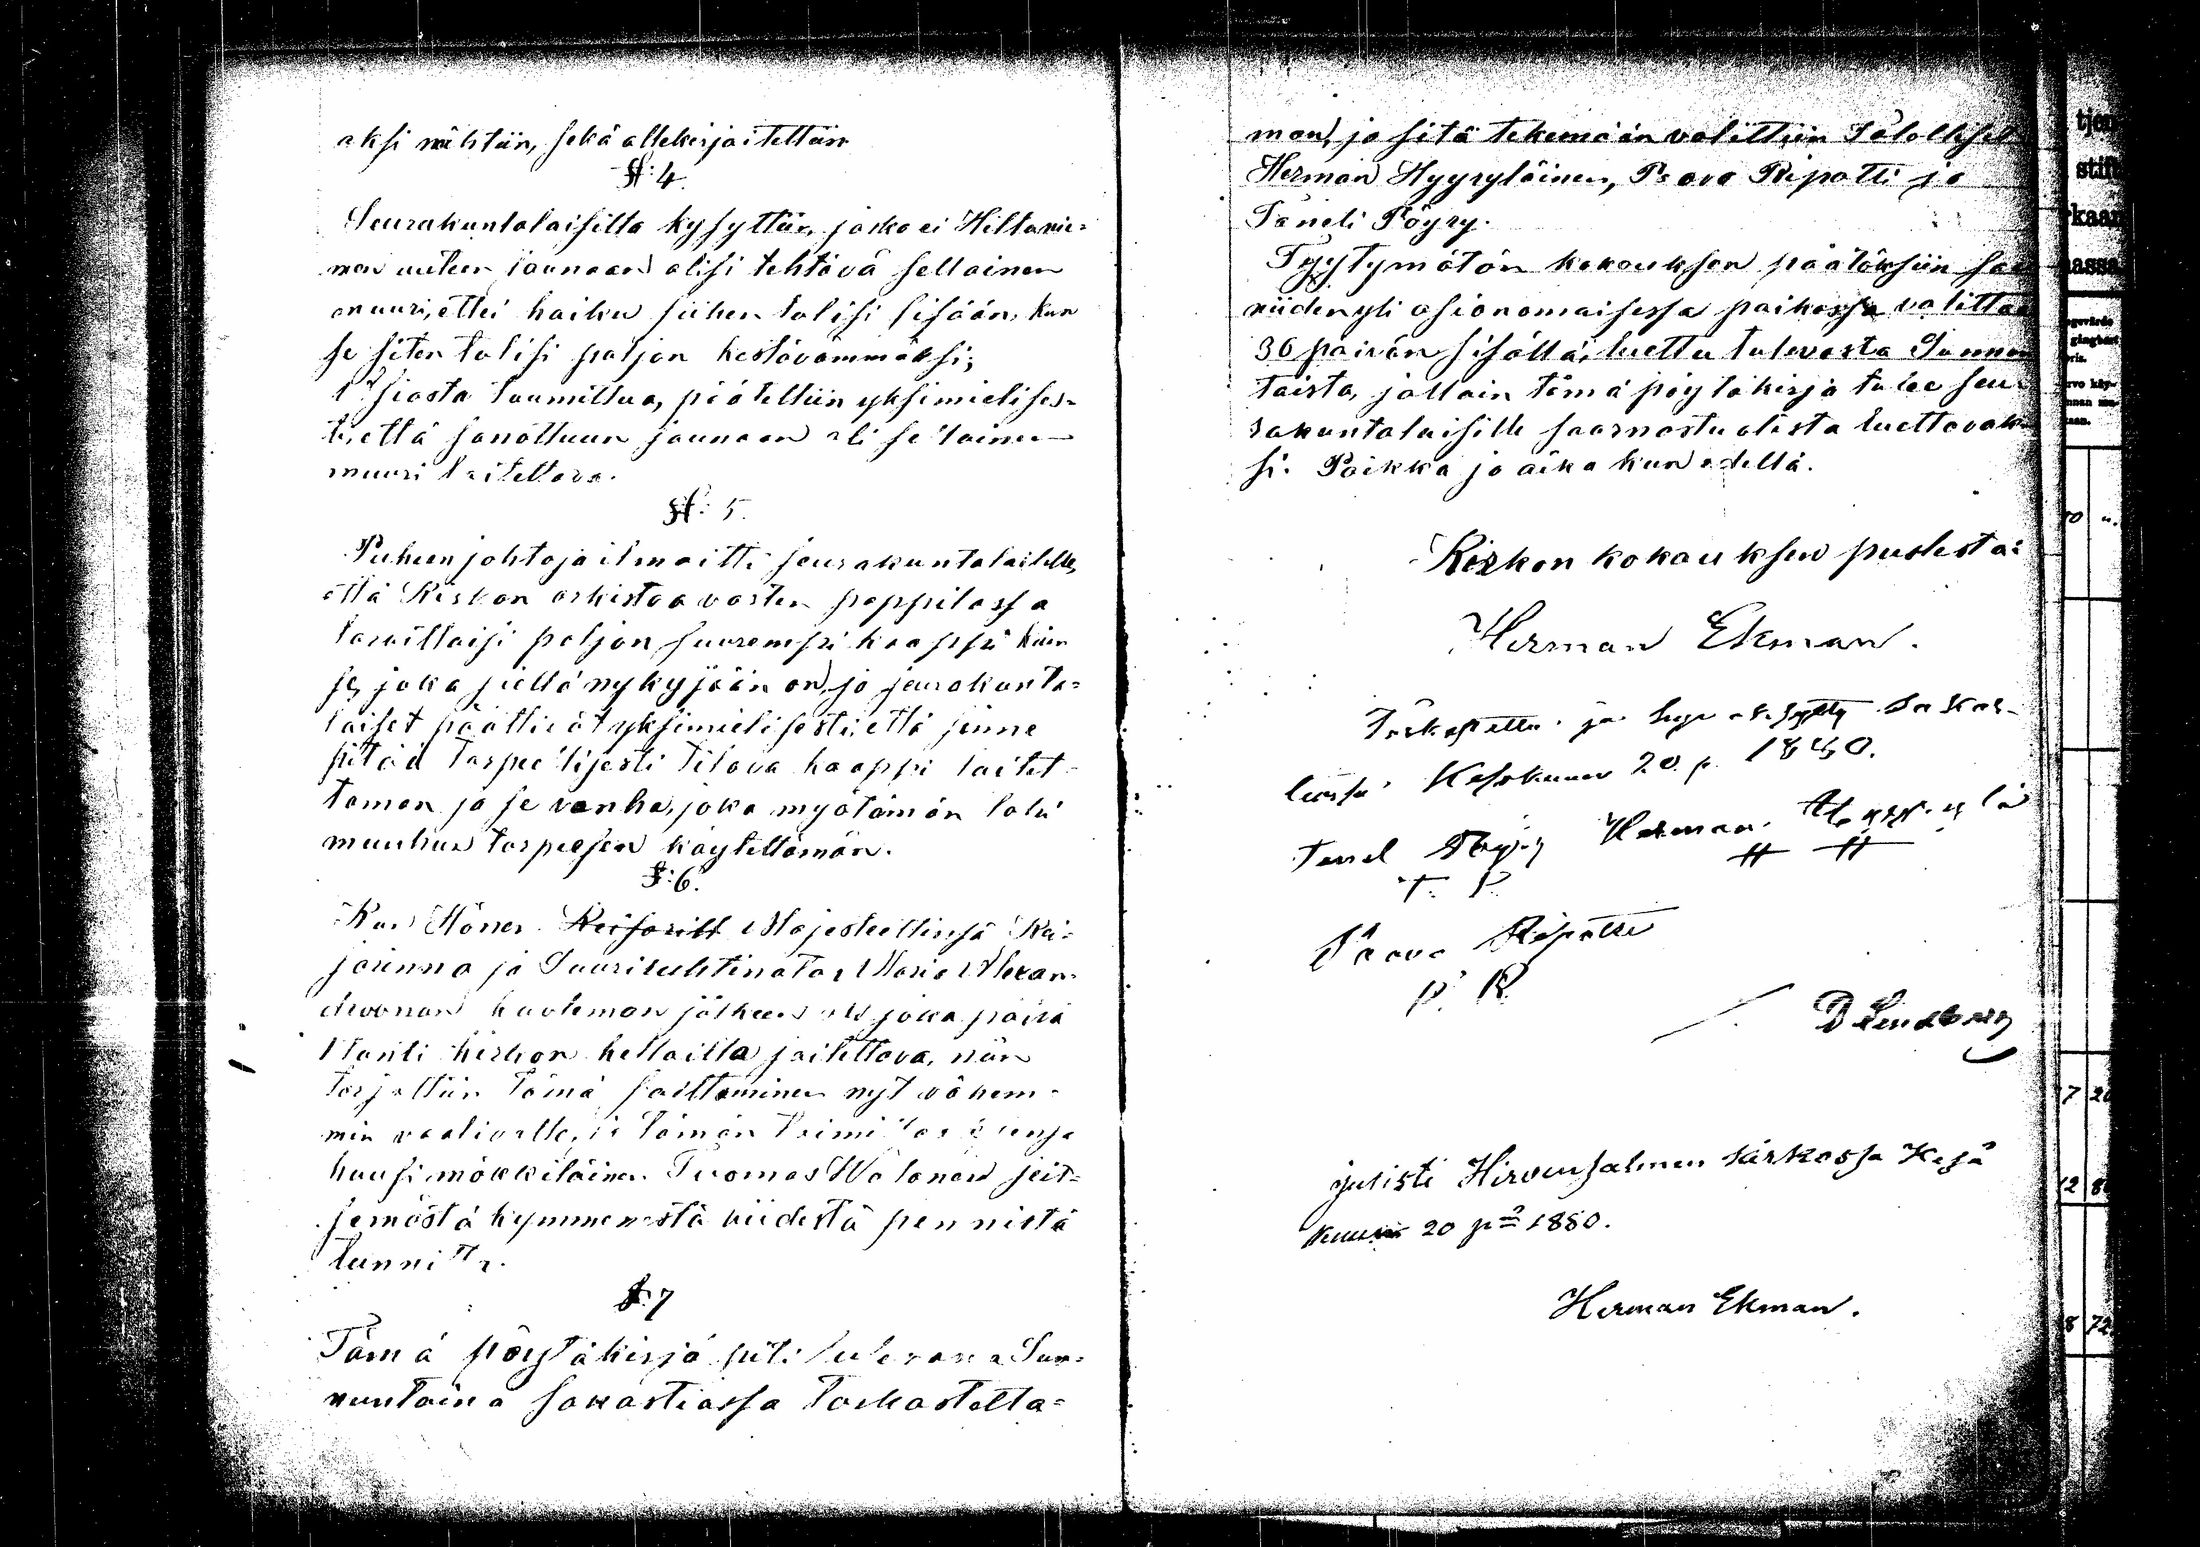 aksi nähtiin, sekä allekirjoitettiin
§: 4.
Seurakuntalaisilta kysyttiin, josko ei Hiltanie-
men uuteen saunaan olisi tehtävä sellainen
muuri, ettei haiku siihen tulisi sisään, kun
se siten tulisi paljon kestävämmäksi;
siasta tuumittua, päätettiin yksimielises-
ti, että sanottuun saunaan oli se'lainen
muuri laitettava.
§: 5.
Puheenjohtaja ilmoitti seurakuntalaisille,
että Kirkon arkistoa varten pappilassa
tarvittaisi paljon suurempi kaappi kuin
se, joka siellä nykyjään on, ja seurakunta-
laiset päättivät yksimielisesti, että sinne
pitää tarpeellisesti tilava kaappi laitet-
taman ja se vanha, joka myötämän tahi
muuhun tarpeesen käytettämän.
§: 6.
Kun Hänen Keisarill Majesteettinsä Kei-
sarinna ja Suuriruhtinatar Maria Alexan-
drovnan kuoleman jälkeen oli joka päivä
1 tunti kirkon kelloilla soitettava, niin
tarjottiin tämä soittaminen nyt vähem-
min vaativalle, ja tämän toimi
huusi mökkiläinen Tuomas Walonen seit-
semästä kymmenestä viidestä pennistä
tunnilta.
§: 7
Tämä pöytäkirja piti tulevana Sun-
nuntaina sakastiassa tarkastetta-
man, ja sitä tekemään valittiin Talolliset
Herman Hyyryläinen, Paavo Ripatti ja
Taneli Pöyry.
Tyytymätön kokouksen päätöksiin saa
niiden yli asianomaisessa paikassa valittaa
30 päivän sisällä, luettu tulevasta Sunnun
taista, jolloin tämä pöytäkirja tulee seu-
rakuntalaisille saarnastuolista luettavak-
si. Paikka ja aika kun edellä.
Kirkon kokouksen puolesta:
Herman Ekman.
Tarkastettu ja hyväksytty Sakas-
tiassa Kesäkuun 20 p. 1880.
Tanel Pöyry Herman Hyyryläi
T. P. H H
Paavo Ripatti
P. R.
D Lindberg
julisti Hirvensalmen kirkossa Kesä
kuun 20 pnä 1880.
Herman Ekman.
tjen
stift
kaan
nassa